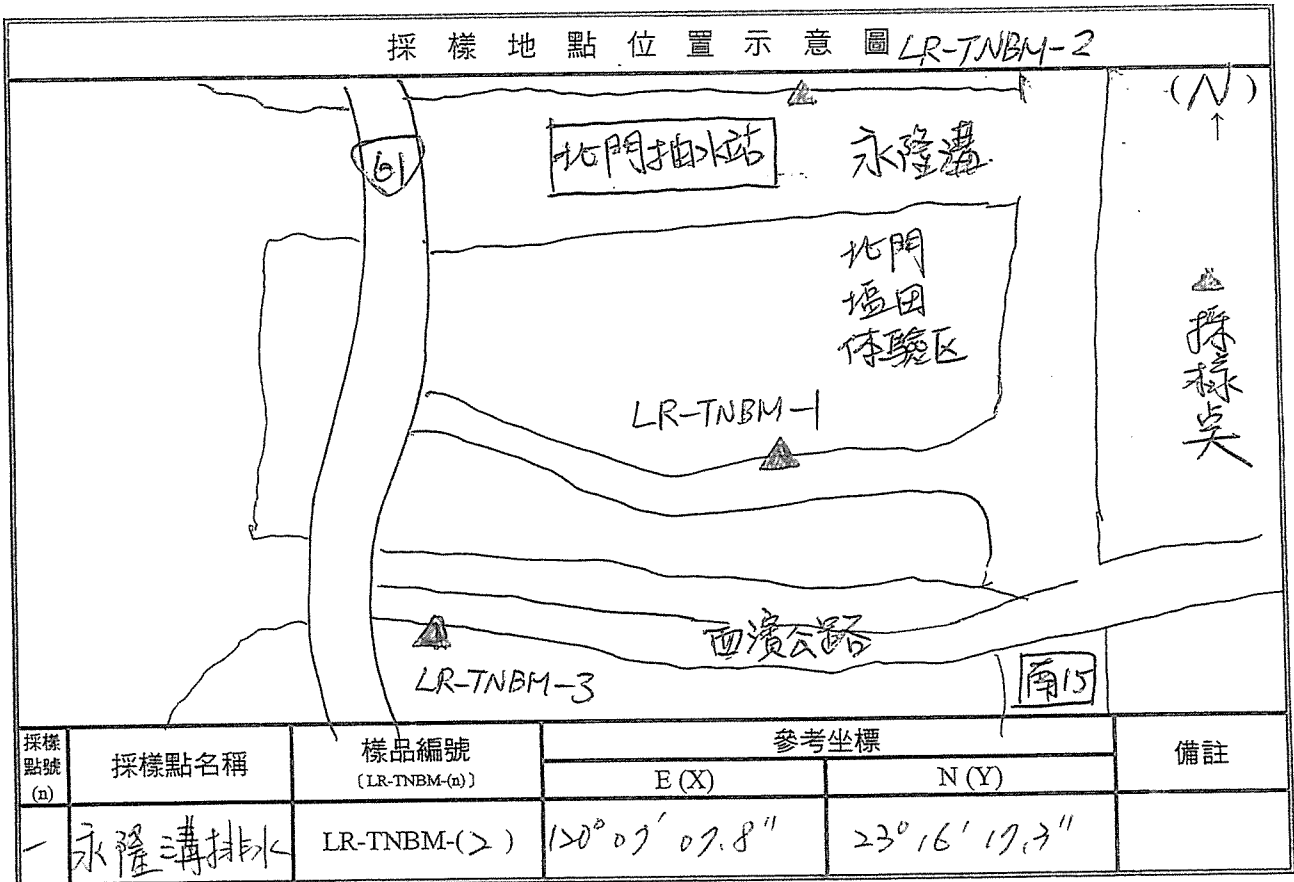 採樣地點位置示意圖 LR-TNBM-2
(N)
↑
61
北門抽水站
永隆溝
北門
塩田
体驗区
採樣点
LR-TNBM-1
西濱公路
LR-TNBM-3
南15
採樣點號(n)
採樣點名稱
樣品編號
〔LR-TNBM-(n)〕
參考坐標
E (X)
N (Y)
備註
一
永隆溝排水
LR-TNBM-(2)
120° 07' 07.8"
23° 16' 17.3"